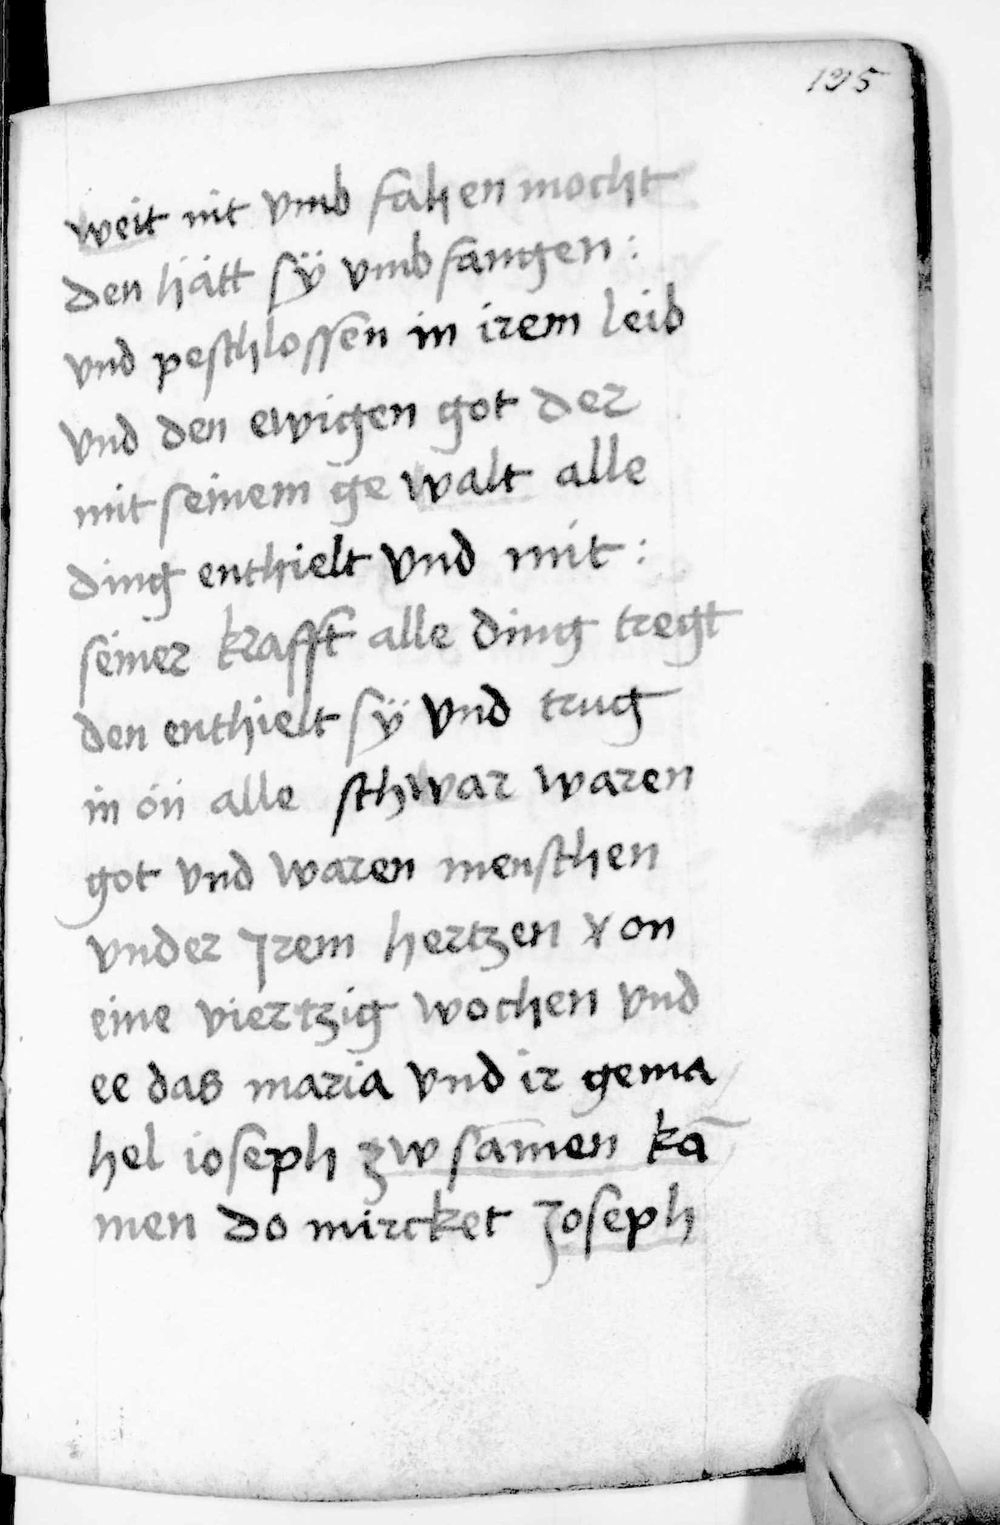 195
weit nit vmb fahen mocht
den hátt sÿ vmb fangen :
vnd peschlossen in irem leib
vnd den ewigen got der
mit seinem ge walt alle
ding enthielt vnd mit :
seiner krafft alle ding tregt
den enthielt sÿ vnd trug
in ón alle schwar waren
got vnd waren menschen
vnder Jrem hertzen von
eine viertzig wochen vnd
ee das maria vnd ir gema
hel ioseph zw samen kā
men do mircket Joseph